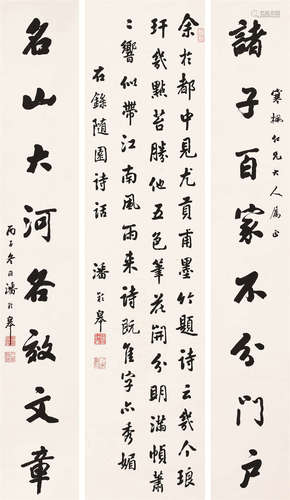 諸子百家不分門戶
寒梅仁兄大人屬正
余於都中見尤貢甫墨竹題詩云幾个琅
玕幾點苔勝他五色筆花開分明滿幀蕭
〻響似帶江南風雨來詩既佳字亦秀媚
右錄隨園詩話
潘齡皋
名山大河各放文章
丙子冬日潘齡皋